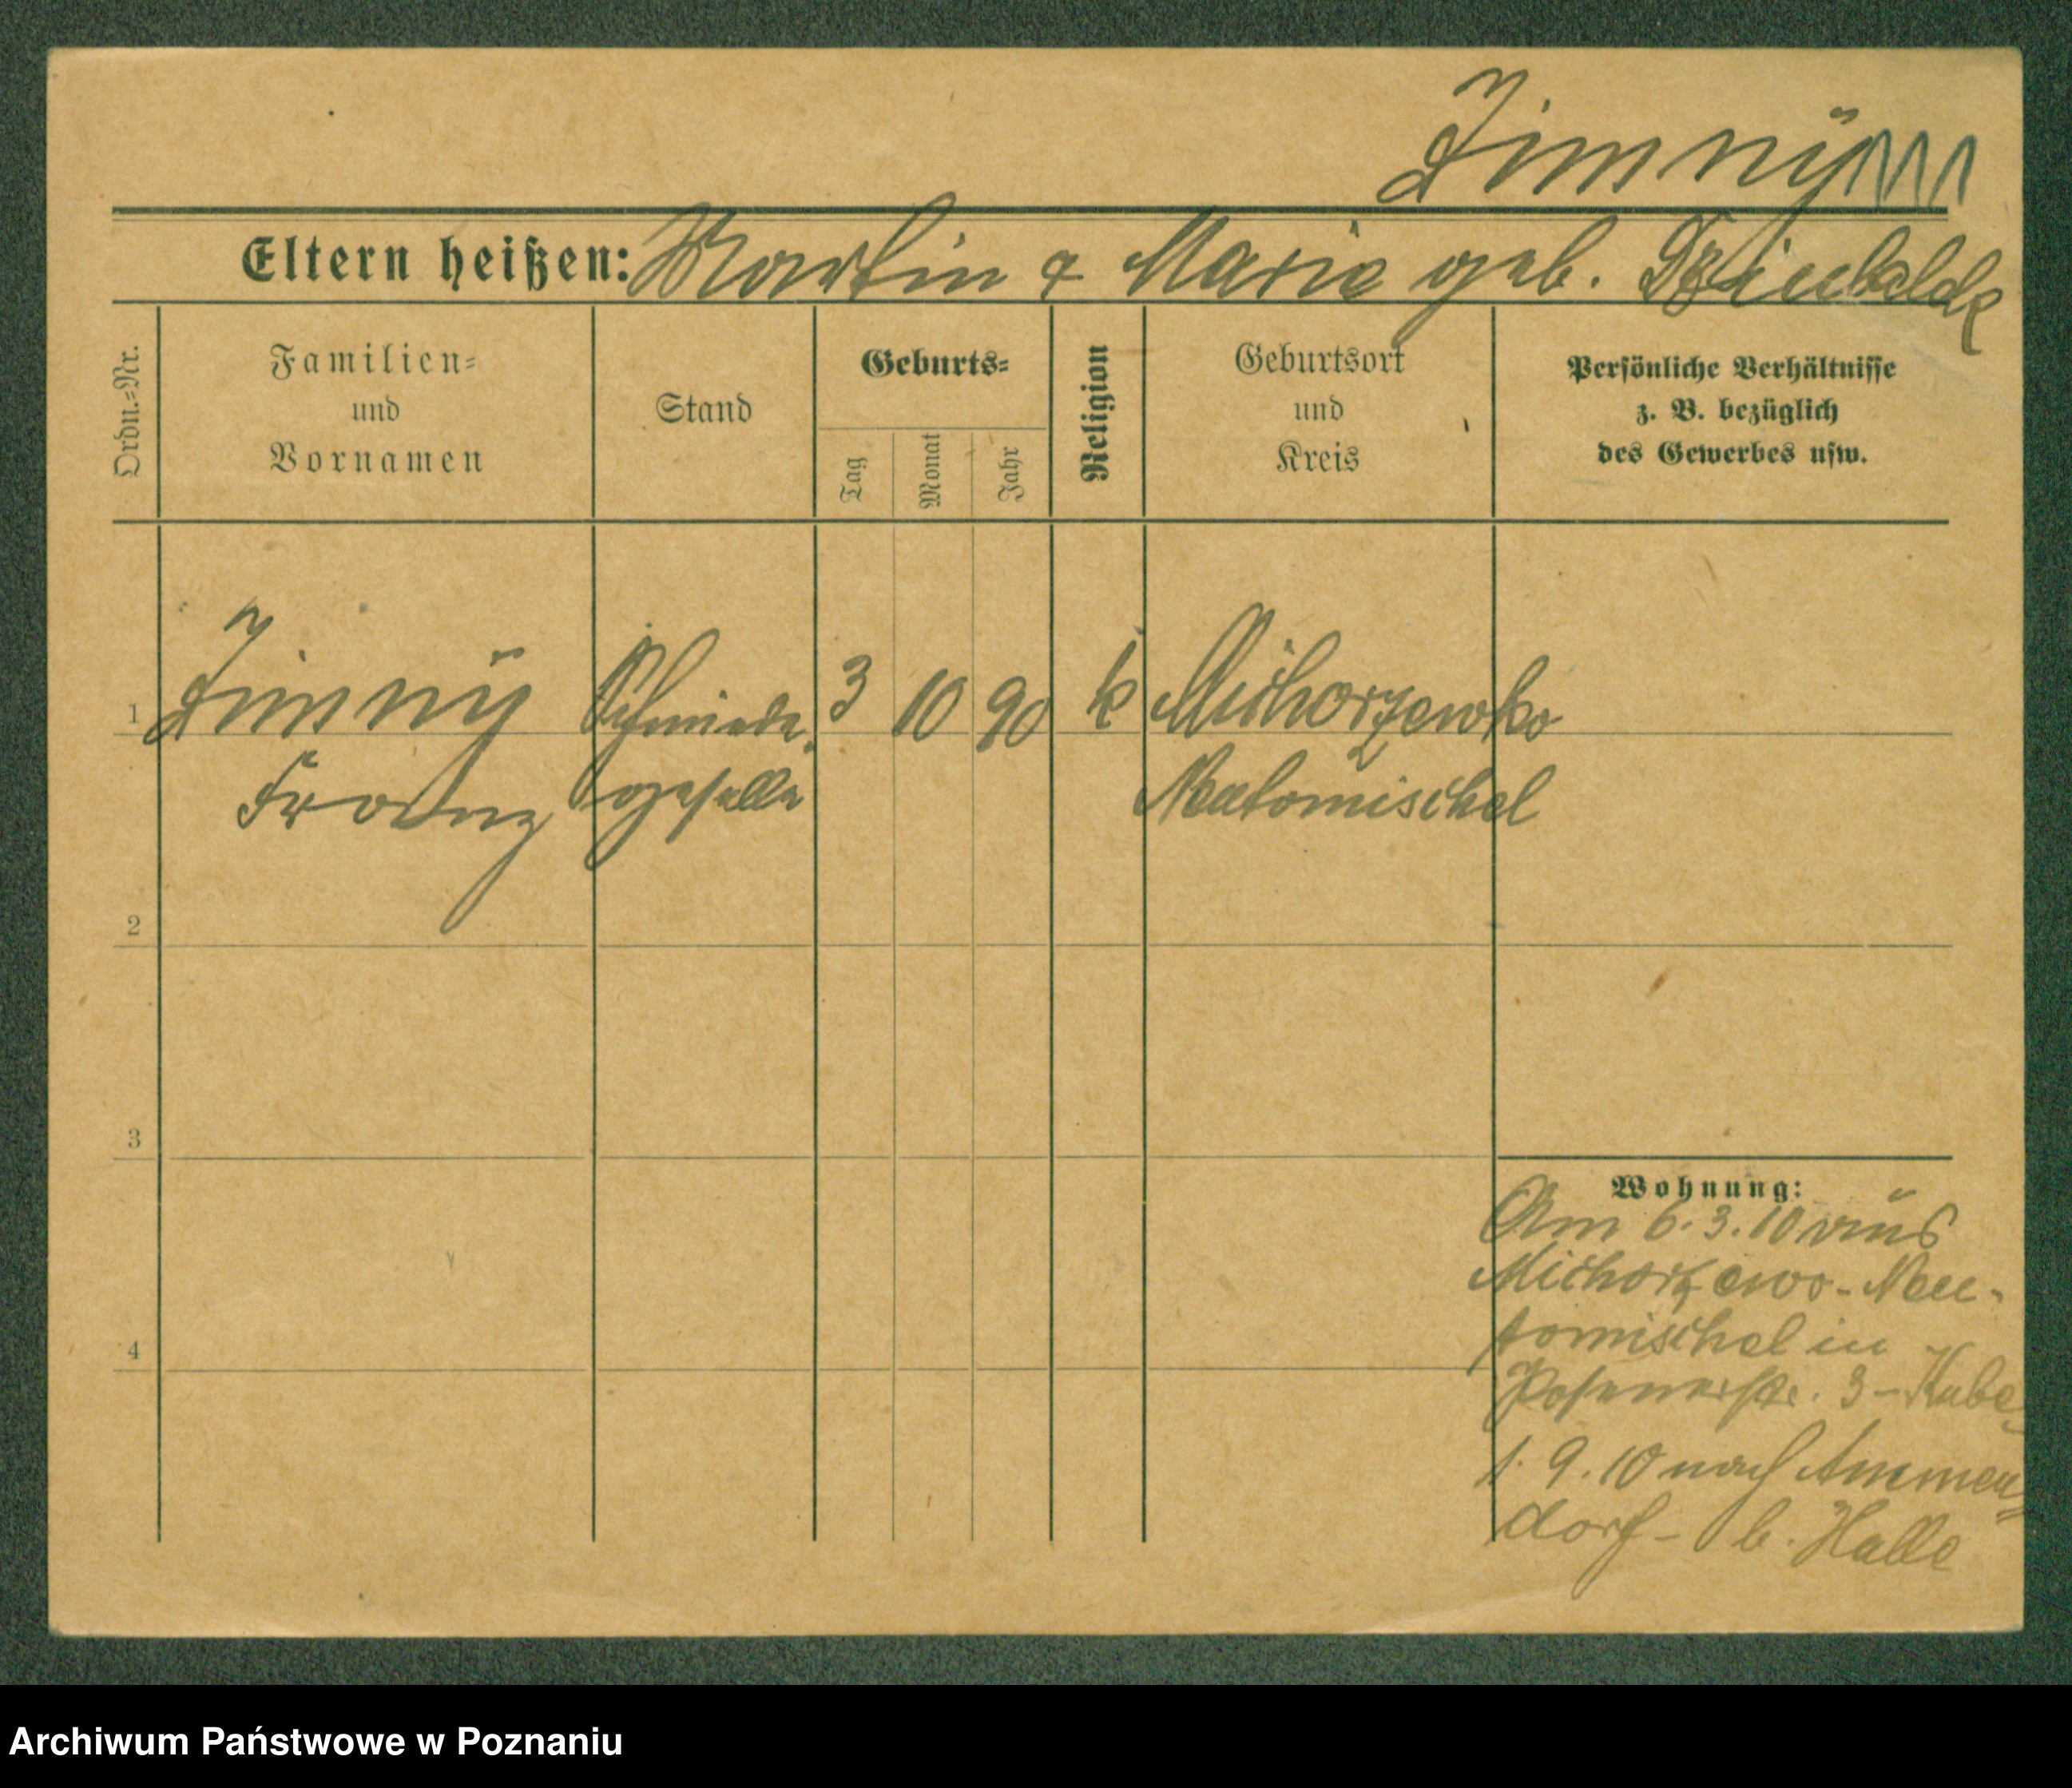 Zimnÿ
Eltern heißen: Martin & Marie geb.
Ordn.-Nr.
Familien-
und
Vornamen
Stand
Geburts-
Tag
Monat
Jahr
Religion
Geburtsort
und
Kreis
Persönliche Verhältnisse
z. B. bezüglich
des Gewerbes usw.
1 Zimnÿ Schmiede- 3 10 90 k Michorzewko
Franz geselle Neutomischel
2
3
4
Wohnung:
Am 6.3.10 aus
Michorzewo-Neu-
tomischel in
Posenerstr. 3 - Kube
1.9.10 nach Ammen-
dorf - b. Halle
Archiwum Państwowe w Poznaniu